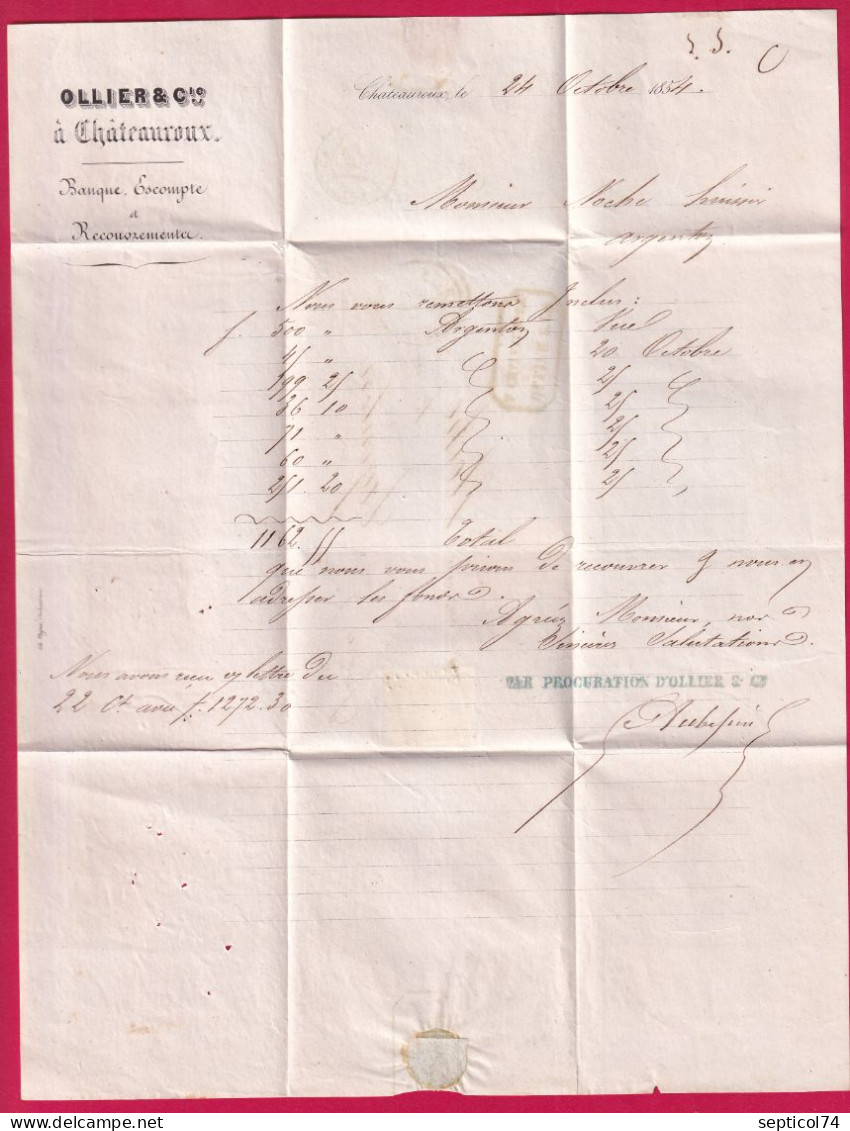 OLLIER & Cie
à Châteauroux.
Banque, Escompte
et
Recouvrements.
Châteauroux, le 24 Octobre 1854.
Monsieur Noche huissier
Argenton
Nous vous remettons Inclus :
f. 500 " Argenton Vue
45 " 20 Octobre
199 25 25
36 10 25
71 " 25
60 " 25
251 20 25
1162. 55 Total
que nous vous prions de recouvrer & nous en
adresser les fonds.
Agréez Monsieur, nos
Sincères Salutations.
Nous avons reçu vs lettre du
22 Ct avec f. 1272.30
PAR PROCURATION D'OLLIER & Cie
septicol74